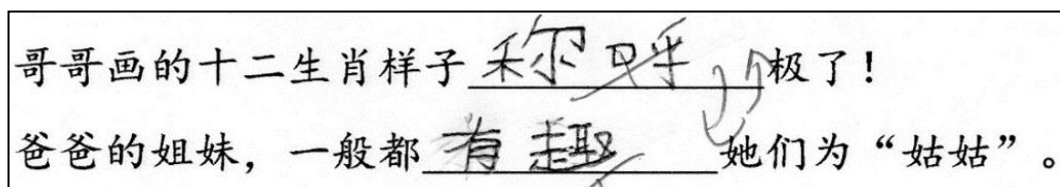 哥哥画的十二生肖样子称呼极了！
爸爸的姐妹，一般都有趣她们为“姑姑”。